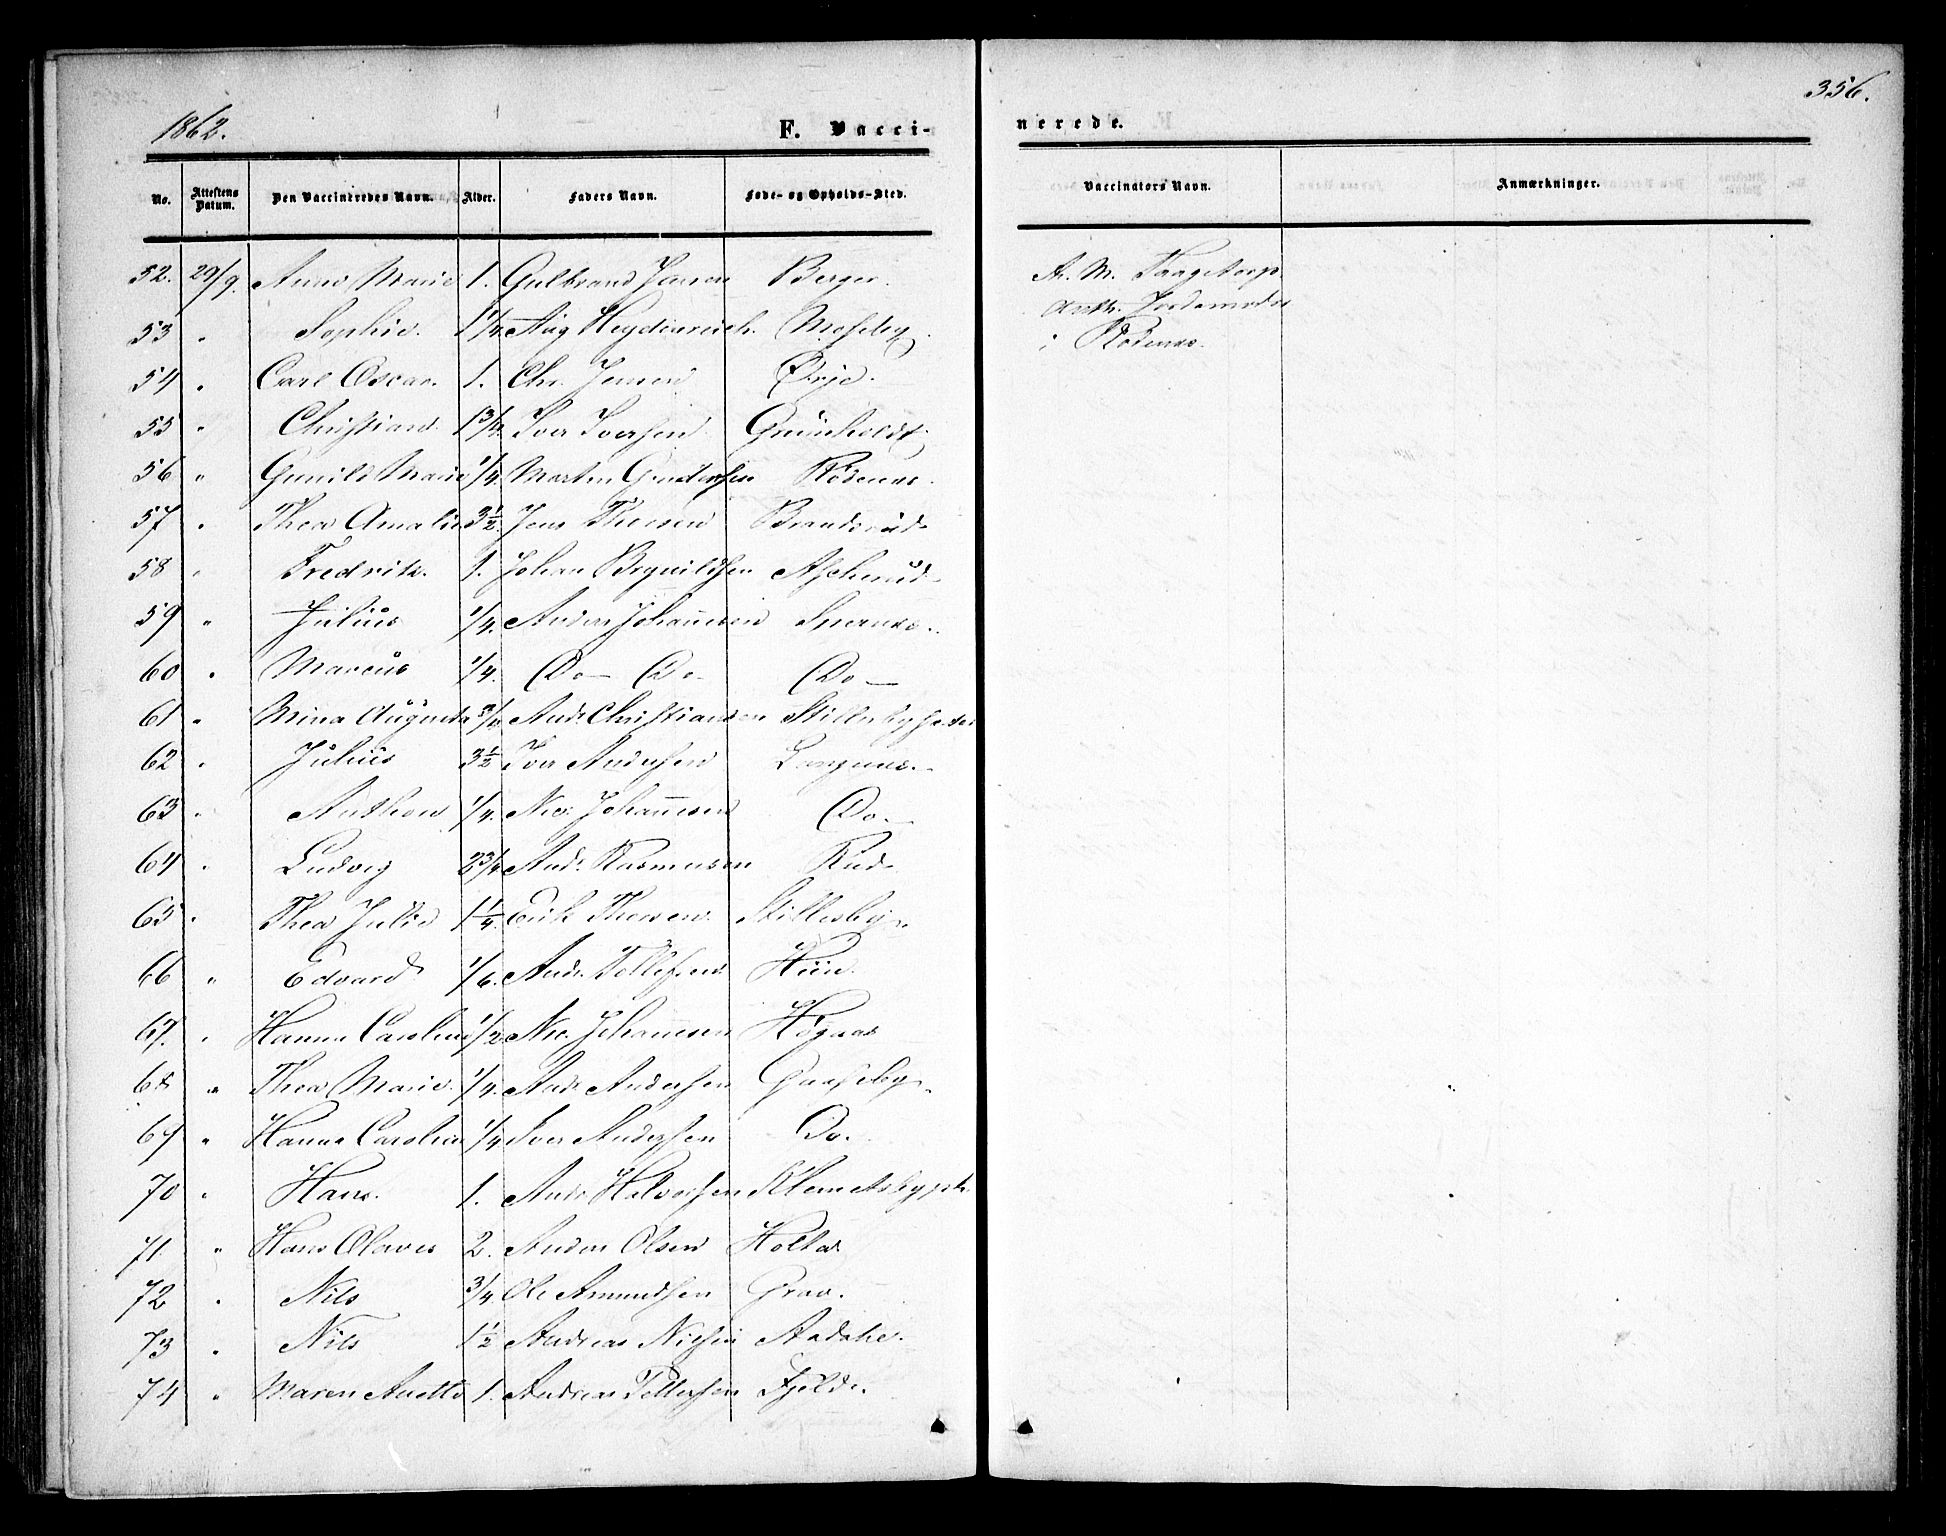 356.
1862. F. Vacci- nerede.
No. Attestens Datum. Den Vaccineredes Navn. Alder. Faders Navn. Føde- og Opholds-Sted. Vaccinators Navn. Anmærkninger.
52. 29/9. Anne Marie 1. Gulbrand Jensen Berger. A. M. Taagetorp
auth. Jordemoder
i Rødenæs.
53 " Sophie. 1 1/4 Aug Heydenreich. Moseby.
54 " Carl Oscar. 1. Chr. Jensen Ørje.
55 " Christian Iver Iversen Grünholdt
56 " Gunild Marie 1/4. Martin Gundersen Rødenæs.
57 " Thea Amalie 3 1/2. Jens Thoresen Brandsrud
58 " Fredrik. 1. Johan Brynildsen Aschrud
59 " Julius 1/4. Anders Johannesen
60 " Marcus 1/4. Do— Do— Do—
61 " Mina Augusta And. Christiansen
62 " Julius 3 1/2 Iver Andersen Langnæs.
63 " Anthon 1/4. Nic. Johannesen Do.
64 " Ludvig 2 3/4 And. Rasmusen Rud
65 " Thea Julie 1 1/4. Erik Thoresen Stillesby.
66 " Edvard 1/6. And. Tollefsen Hiin.
67. " Hanna Caroline 1/2 Nic. Johannesen Høgnæs
68 " Thea Marie. 1/4. And. Andersen Gaaseby.
69 " Hanna Caroline 1/4 Iver Andersen Do.
70 " Hans. 1. And. Halvorsen
71 " Hans Olaves 2. Anders Olsen Holta
72 " Nils 3/4. Ole Amundsen Grav.
73 " Nils 1 1/2 Andreas Nilsen
74 " Maren Anette 1. Andreas Pettersen Fjeld.